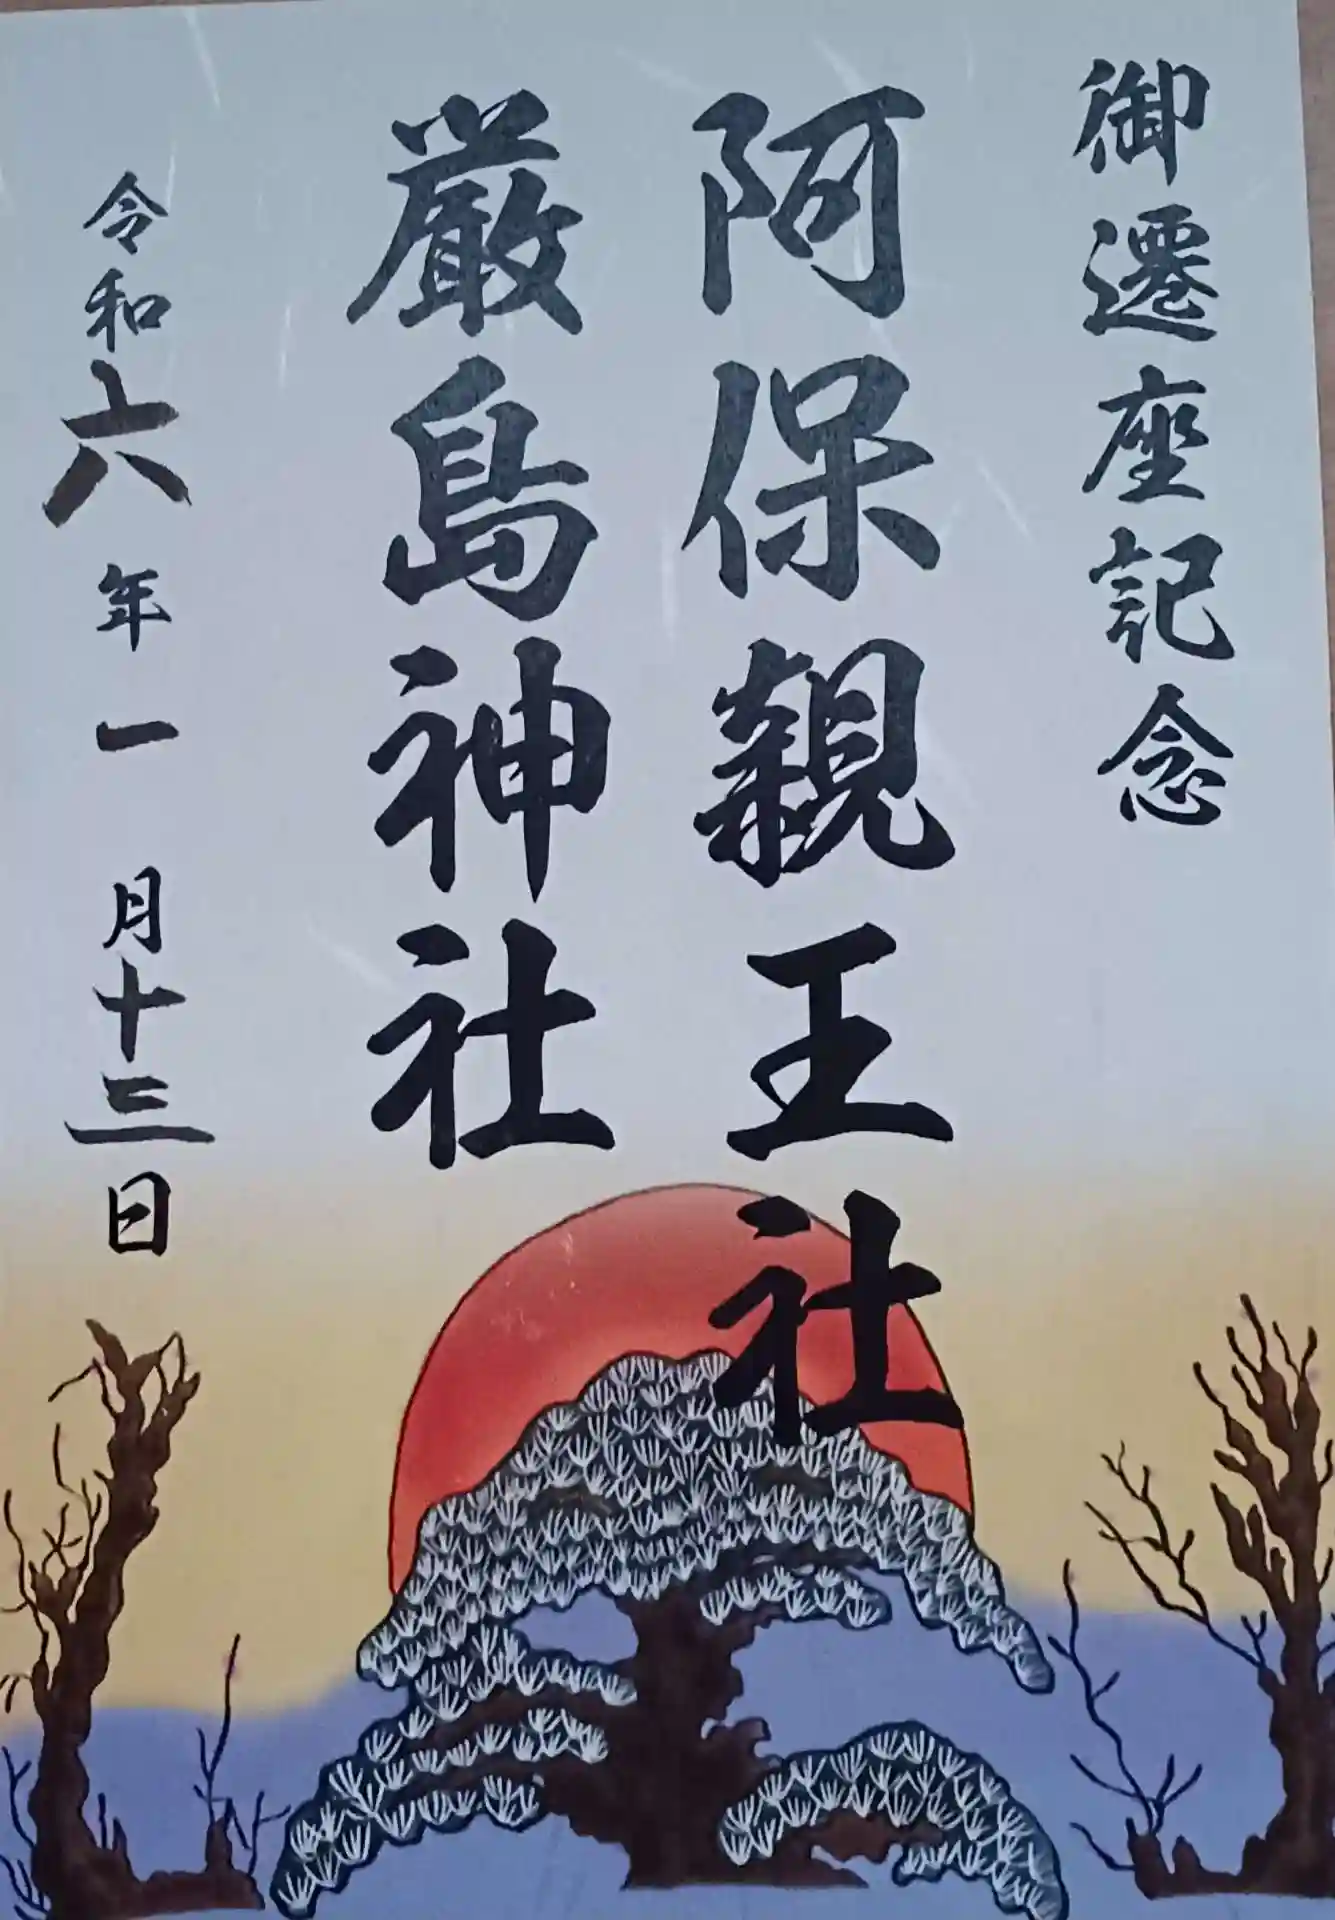 御遷座記念
阿保親王社
厳島神社
令和六年一月十三日